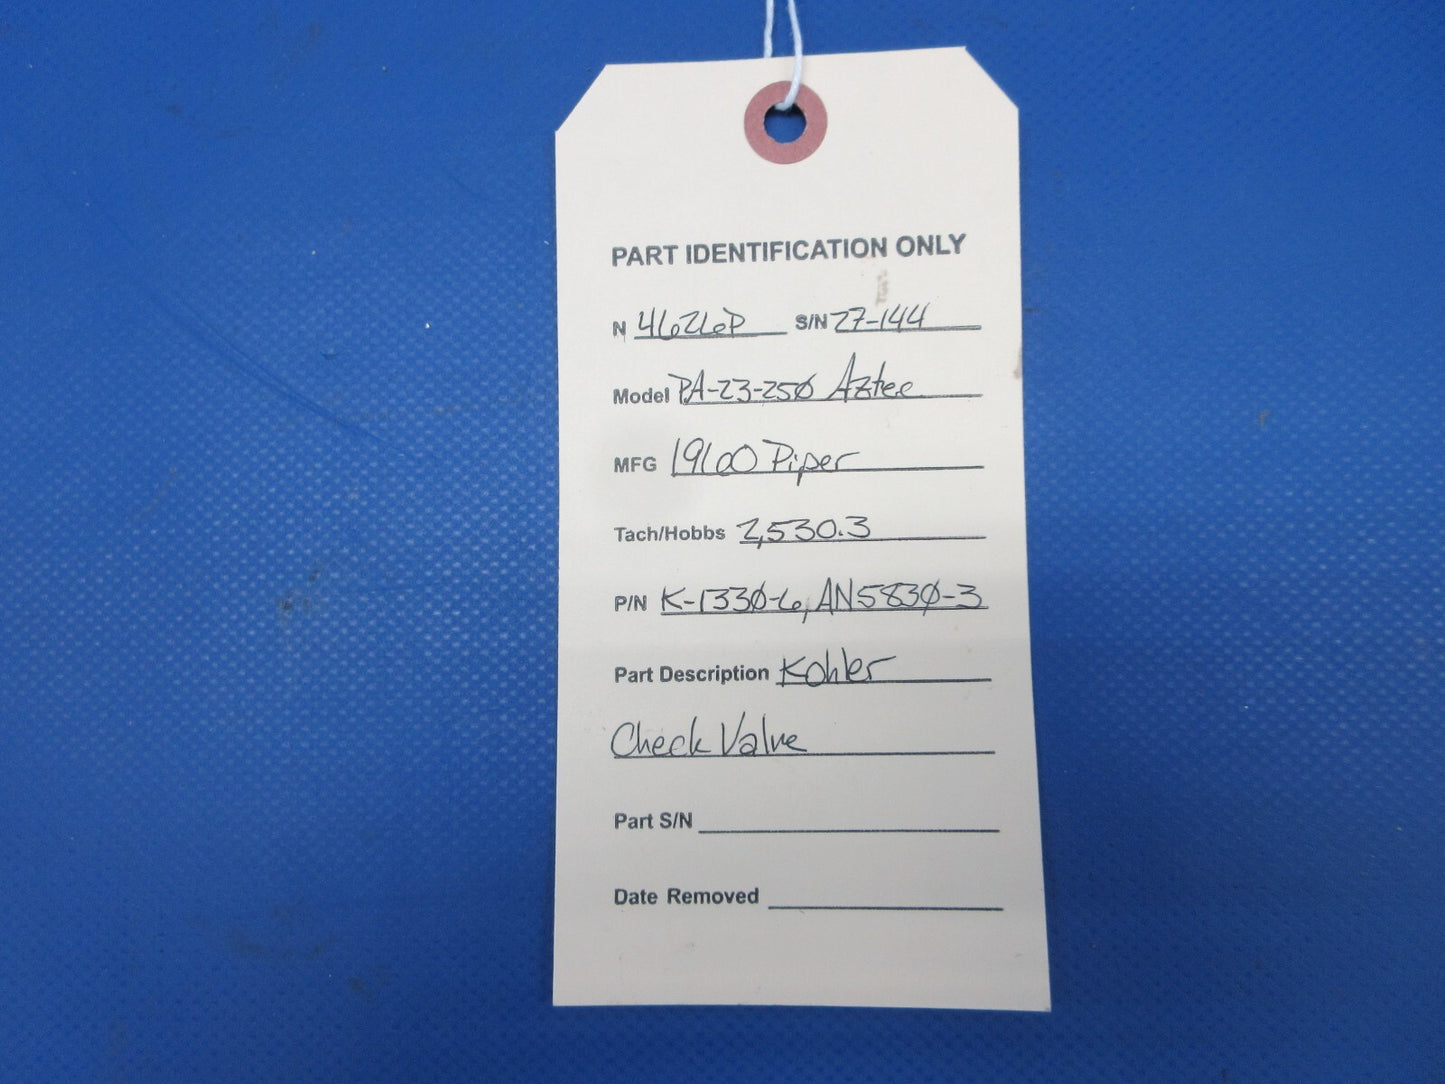 PART IDENTIFICATION ONLY
N 4626P S/N 27-144
Model PA-23-250 Aztec
MFG 1960 Piper
Tach/Hobbs 2,530.3
P/N K-1330-6, AN5830-3
Part Description Kohler
Check Valve
Part S/N
Date Removed